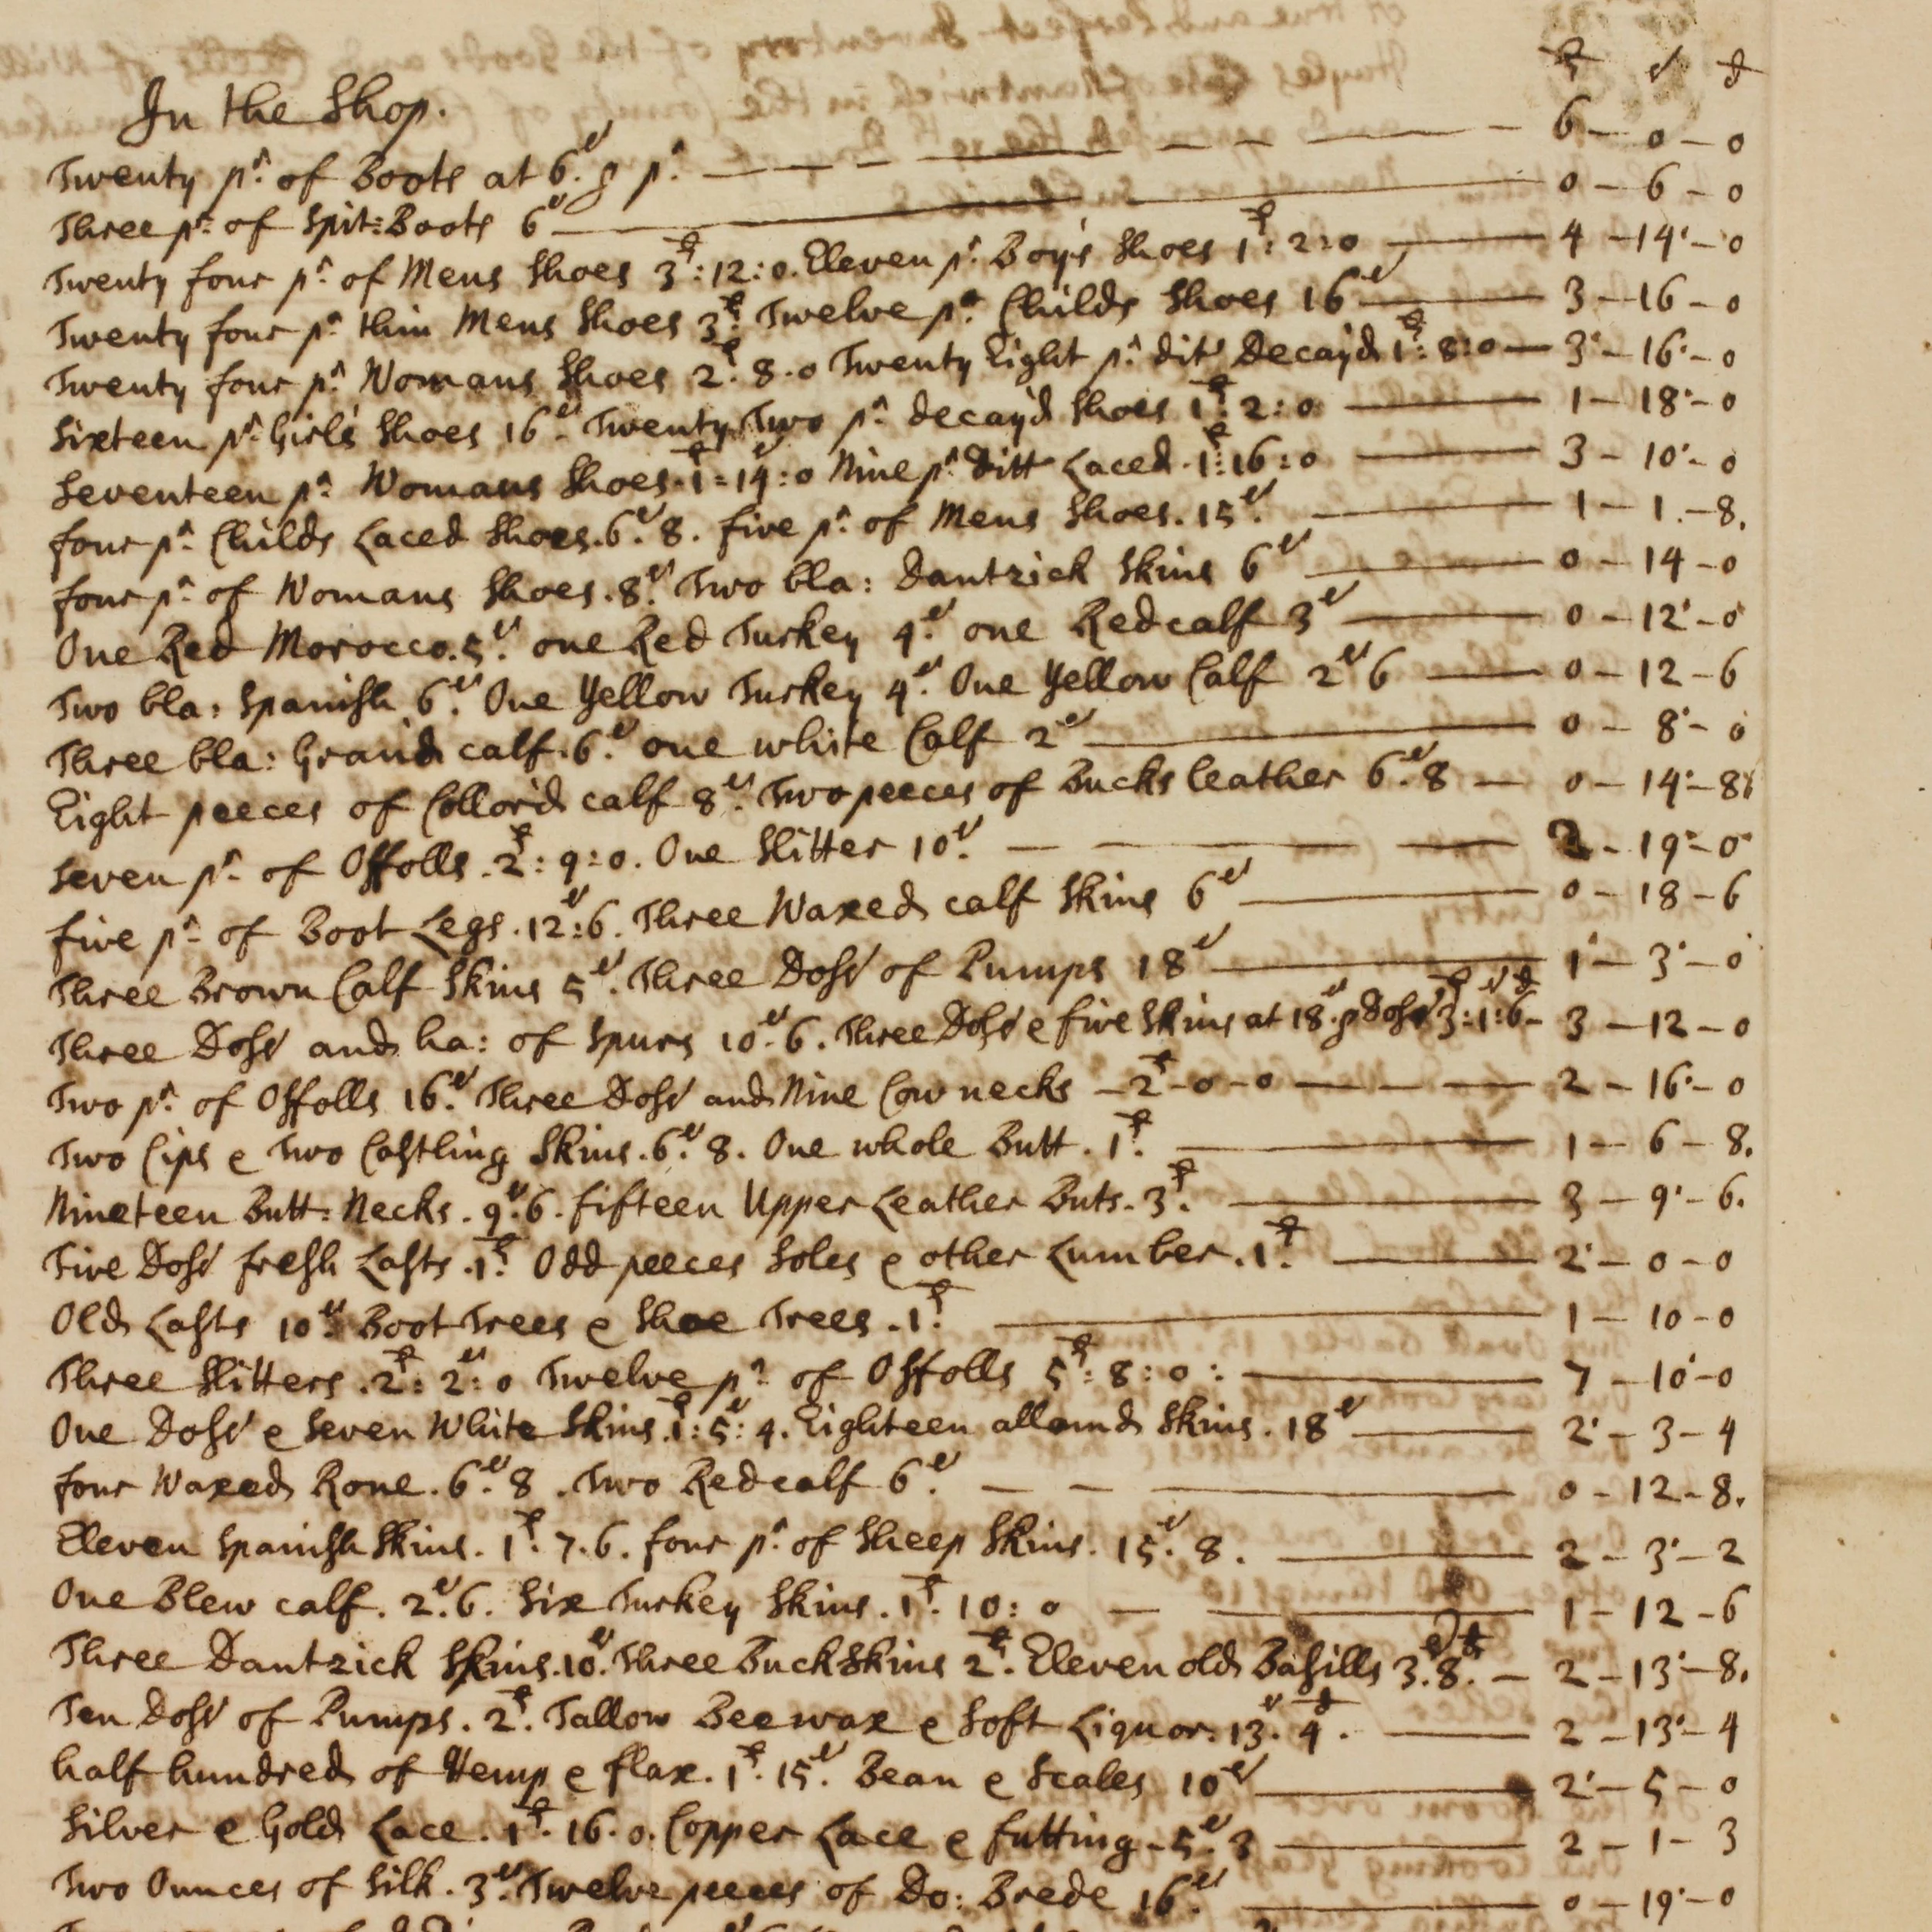 In the Shop.
£ s d
Twenty pr. of Boots at 6s. p pr. — 6 – 0 – 0
Three pr: of Spit=Boots 6s — 0 – 6 – 0
Twenty four pr. of Mens Shoes 3£:12:0. Eleven pr. Boys Shoes 1£:2:0 — 4 – 14 – 0
Twenty four pr. thin Mens Shoes 3£: Twelve pr. Childs Shoes 16s — 3 – 16 – 0
Twenty four pr. Womans Shoes 2£.8.0 Twenty Eight pr. ditt Decayd 1£:8:0 — 3 – 16 – 0
Sixteen pr. Girls Shoes 16s. Twenty Two pr. decayd Shoes 1£:2:0 — 1 – 18 – 0
Seventeen pr. Womans Shoes. 1£=14s:0 Nine pr. Ditt Laced. 1£:16:0 — 3 – 10 – 0
four pr. Childs Laced Shoes. 6s.8. five pr. of Mens Shoes. 15s. — 1 – 1 – 8.
four pr. of Womans Shoes. 8s. Two bla: Dantzick Skins 6s — 0 – 14 – 0
One Red Morocco. 5s. one Red Turkey 4s. one Red calf 3s — 0 – 12 – 0
Two bla: Spanish 6s. One Yellow Turkey 4s. One Yellow Calf 2s 6 — 0 – 12 – 6
Three bla: Graind calf. 6s. one white Calf 2s — 0 – 8 – 0
Eight peeces of Collord calf 8s. Two peeces of Bucks leather 6s.8 — 0 – 14 – 8
Seven pr. of Offolls. 2£:9:0. One Slitter 10s. — 2 – 19 – 0
five pr. of Boot Legs. 12s:6. Three Waxed calf Skins 6s — 0 – 18 – 6
Three Brown Calf Skins 5s. Three Doss of Pumps 18s — 1 – 3 – 0
Three Doss and ha: of Spurs 10s.6. Three Doss e five Skins at 18s. p Doss 3£:1s:6d – 3 – 12 – 0
Two pr. of Offolls 16s. Three Doss and Nine Cow necks – 2£ – 0 – 0 — 2 – 16 – 0
Two Cips e Two Castling Skins. 6s.8. One whole Butt. 1£. — 1 – 6 – 8.
Nineteen Butt=Necks. 9s.6. fifteen Upper Leather Buts. 3£. — 3 – 9 – 6.
Five Doss fresh Lasts. 1£. Odd peeces Soles e other Lumber. 1£. — 2 – 0 – 0
Old Lasts 10s. Boot Trees e Shoe Trees. 1£. — 1 – 10 – 0
Three Slitters. 2£:2s:0 Twelve pr. of Offolls 5£:8:0: — 7 – 10 – 0
One Doss e Seven White Skins. 1£:5s:4. Eighteen allomd Skins. 18s — 2 – 3 – 4
four Waxed Rone. 6s.8. Two Red calf 6s. — 0 – 12 – 8.
Eleven Spanish Skins. 1£.7.6. four pr. of Sheep Skins. 15s.8. — 2 – 3 – 2
One Blew calf. 2s.6. Six Turkey Skins. 1£.10:0 — 1 – 12 – 6
Three Dantzick Skins. 10s. Three Buck Skins 2£. Eleven old Basills 3s.8d. — 2 – 13 – 8.
Ten Doss of Pumps. 2£. Tallow Beewax e Soft Liquor. 13s.4d. — 2 – 13 – 4
half hundred of Hemp e flax. 1£.15s. Bean e Scales 10s — 2 – 5 – 0
Silver e Gold Lace. 1£.16.0. Copper Lace e futting – 5s.3 — 2 – 1 – 3
Two Ounces of Silk. 3s. Twelve peeces of Do: Brede 16s. — 0 – 19 – 0